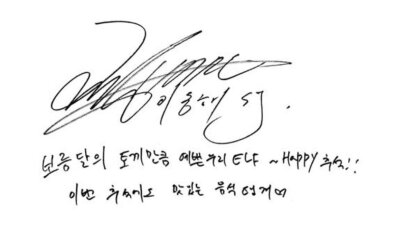 이동해 SJ.
보름달의 토끼만큼 예쁜 우리 ELF ~ HAPPY 추석!!
이번 추석에도 맛있는 음식